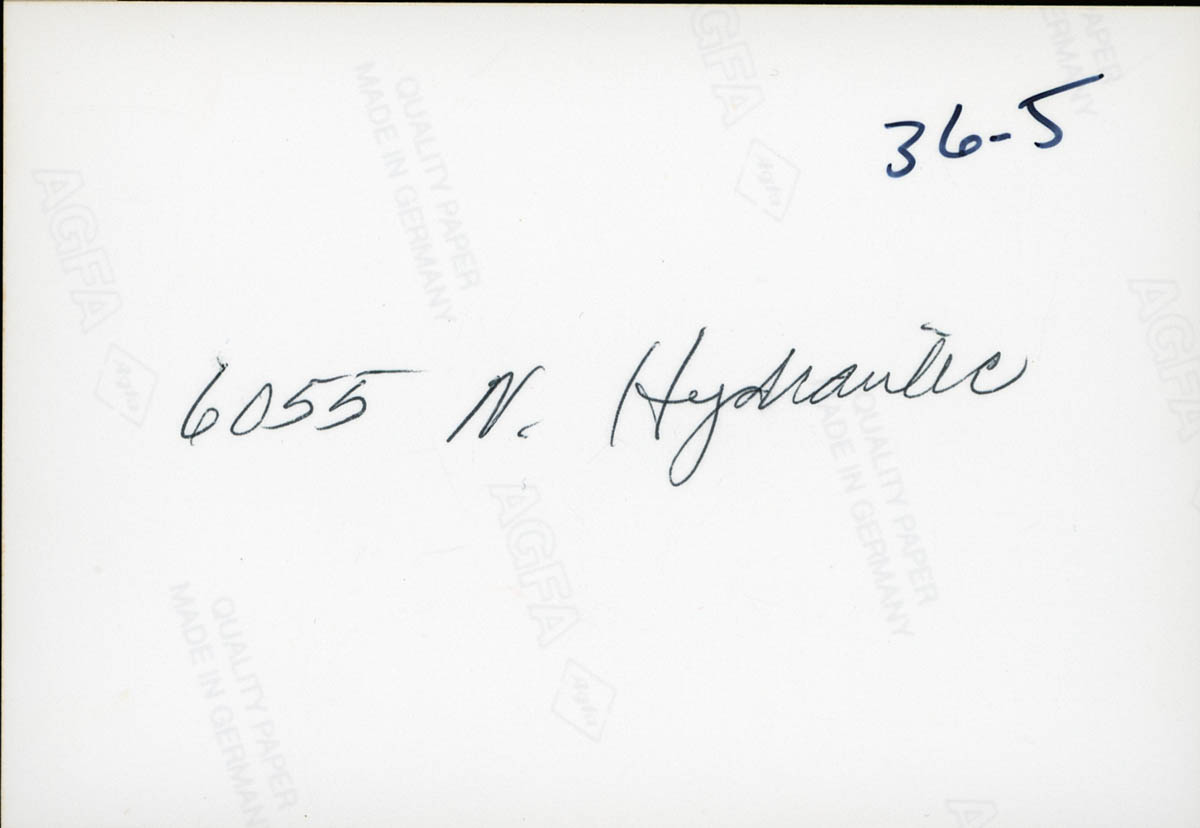 36-5
6055 N. Hydraulic
AGFA
Agfa
QUALITY PAPER
MADE IN GERMANY
AGFA
Agfa
PAPER
GERMANY
AGFA
QUALITY PAPER
MADE IN GERMANY
AGFA
Agfa
QUALITY PAPER
MADE IN GERMAN